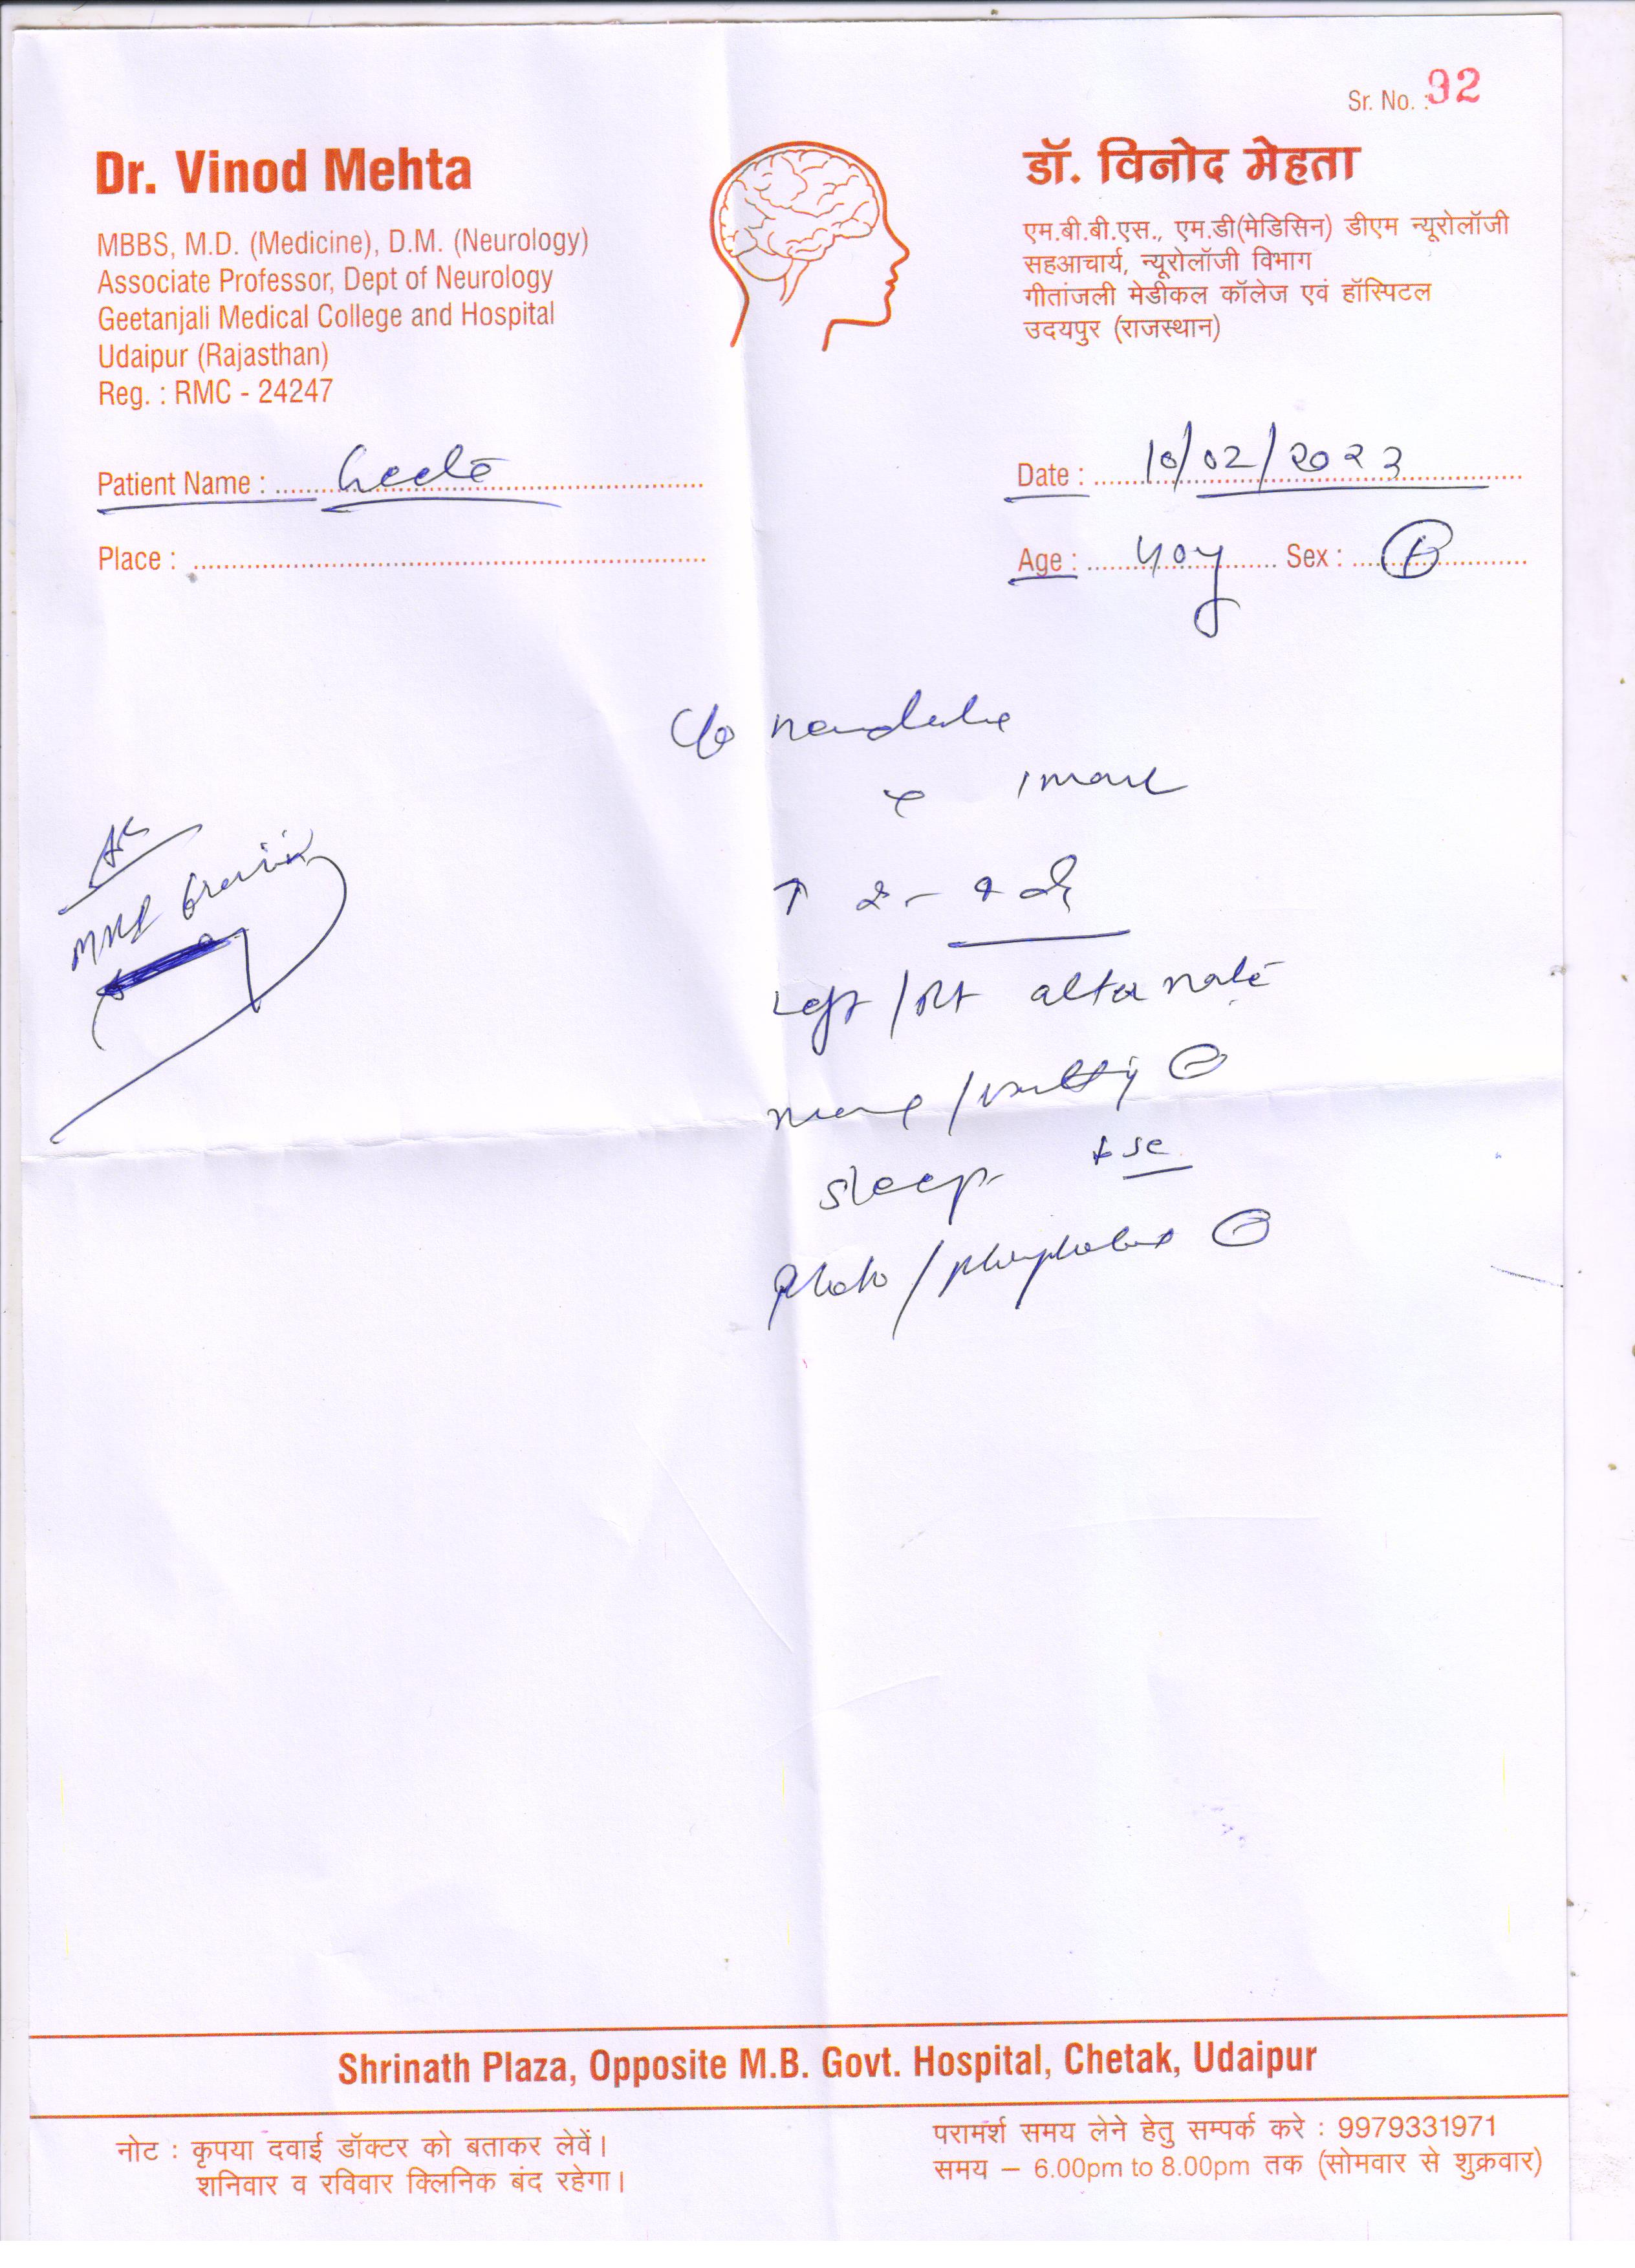 Sr. No. : 92
Dr. Vinod Mehta
MBBS, M.D. (Medicine), D.M. (Neurology)
Associate Professor, Dept of Neurology
Geetanjali Medical College and Hospital
Udaipur (Rajasthan)
Reg. : RMC - 24247
डॉ. विनोद मेहता
एम.बी.बी.एस., एम.डी(मेडिसिन) डीएम न्यूरोलॉजी
सहआचार्य, न्यूरोलॉजी विभाग
गीतांजली मेडीकल कॉलेज एवं हॉस्पिटल
उदयपुर (राजस्थान)
Patient Name :
Date : 10/02/2023
Place :
Age : 40y Sex :
C/o
MRI
Left / Rt alternate
sleep
Photo /
Shrinath Plaza, Opposite M.B. Govt. Hospital, Chetak, Udaipur
नोट : कृपया दवाई डॉक्टर को बताकर लेवें।
शनिवार व रविवार क्लिनिक बंद रहेगा।
परामर्श समय लेने हेतु सम्पर्क करे : 9979331971
समय – 6.00pm to 8.00pm तक (सोमवार से शुक्रवार)